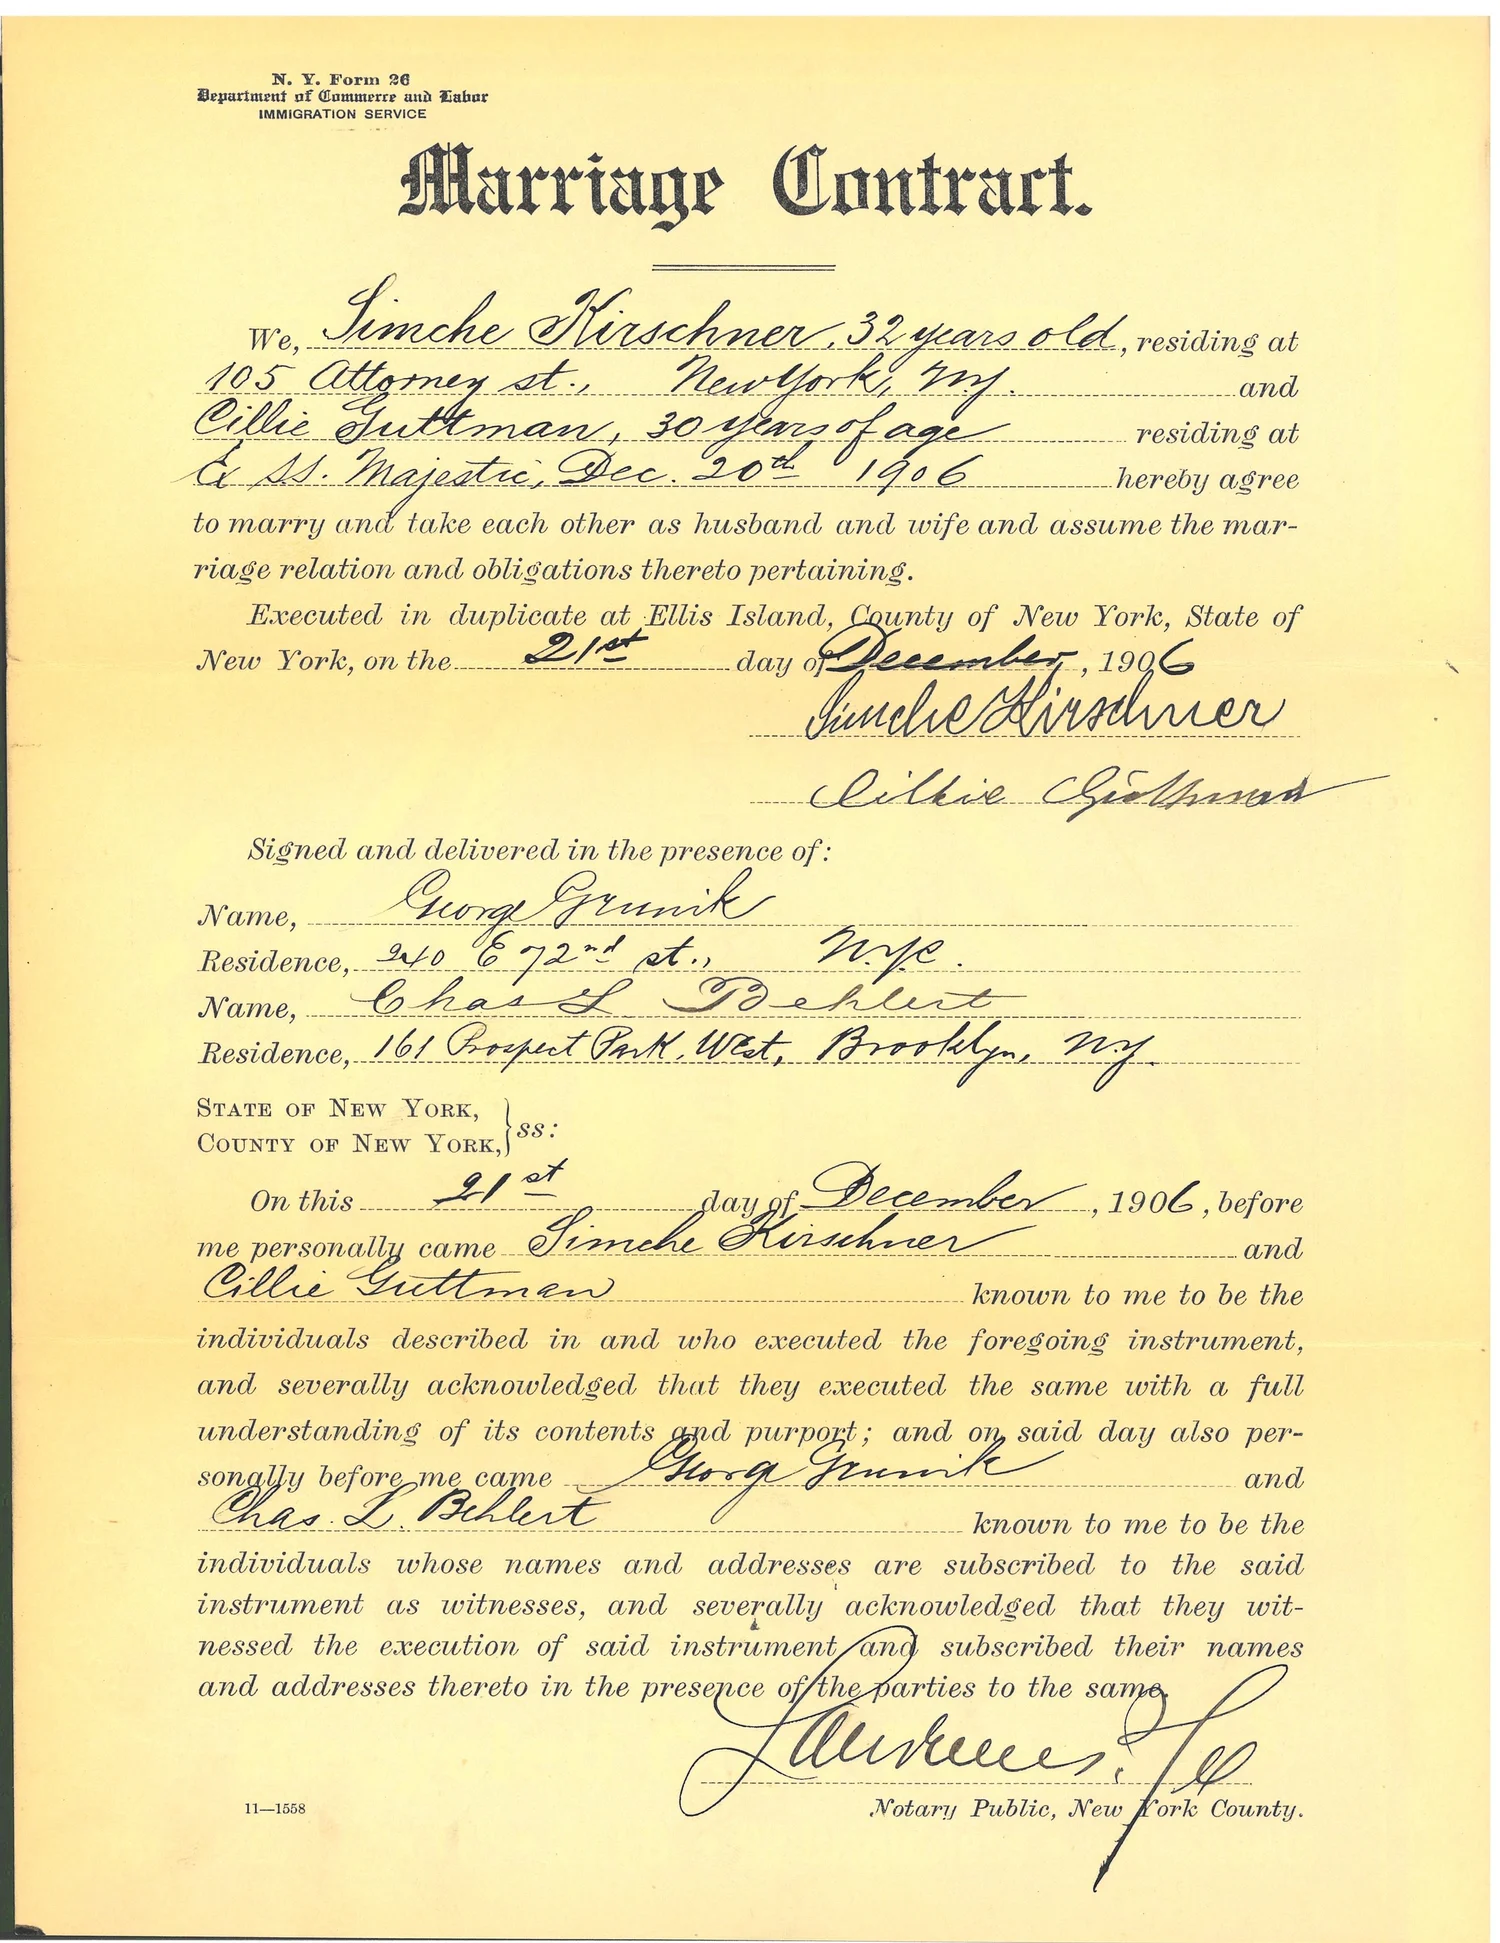 N. Y. Form 26
Department of Commerce and Labor
IMMIGRATION SERVICE
Marriage Contract.
We, Simche Kirschner, 32 years old, residing at
105 Attorney st., New York, N.Y. and
Cillie Guttman, 30 years of age residing at
Ex SS. Majestic, Dec. 20th 1906 hereby agree
to marry and take each other as husband and wife and assume the mar-
riage relation and obligations thereto pertaining.
Executed in duplicate at Ellis Island, County of New York, State of
New York, on the 21st day of December, 1906
Simche Kirschner
Cillie Guttman
Signed and delivered in the presence of:
Name, George Grunik
Residence, 240 E 72nd st., N.Y.C.
Name, Chas L Behlert
Residence, 161 Prospect Park, West, Brooklyn, N.Y.
STATE OF NEW YORK,
COUNTY OF NEW YORK, } ss:
On this 21st day of December, 1906, before
me personally came Simche Kirschner and
Cillie Guttman known to me to be the
individuals described in and who executed the foregoing instrument,
and severally acknowledged that they executed the same with a full
understanding of its contents and purport; and on said day also per-
sonally before me came George Grunik and
Chas. L. Behlert known to me to be the
individuals whose names and addresses are subscribed to the said
instrument as witnesses, and severally acknowledged that they wit-
nessed the execution of said instrument and subscribed their names
and addresses thereto in the presence of the parties to the same.
Notary Public, New York County.
11—1558